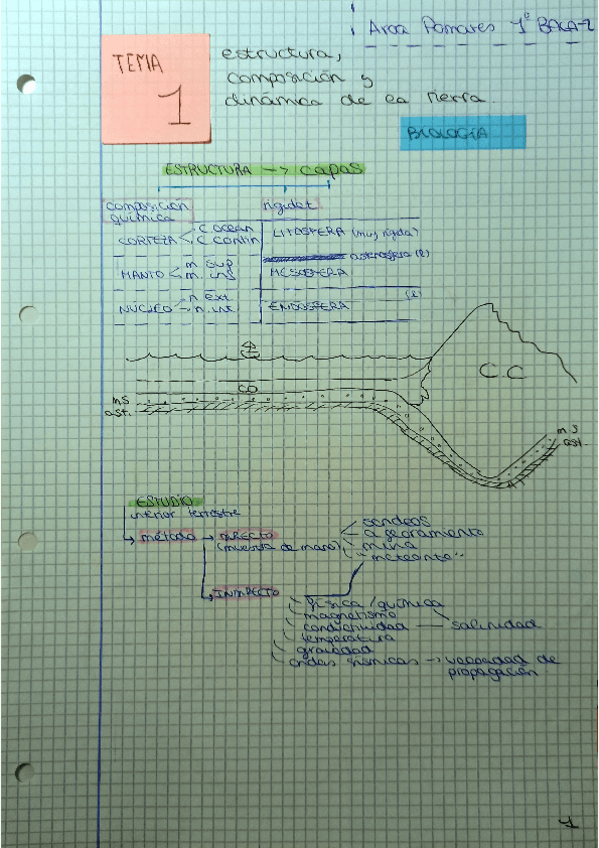 Aroa Pomares 1º BACA-2
TEMA
1
estructura,
composición y
dinámica de la Tierra.
BIOLOGÍA
ESTRUCTURA → capas
composición
química
rigidez
CORTEZA < C ocean
C contin
LITOSFERA (muy rígida)
astenosfera (l)
MANTO < m sup
m inf
MESOSFERA
NÚCLEO < n. ext
n. int
(l)
ENDOSFERA
CO
CC
mS
ast.
mS
ast.
ESTUDIO
interior terrestre
método → DIRECTO
(muestra de mano)
sondeos
afloramiento
mina
"meteorito"
INDIRECTO
física / química
magnetismo
conductividad — salinidad
temperatura
gravedad
ondas sísmicas → velocidad de
propagación
1